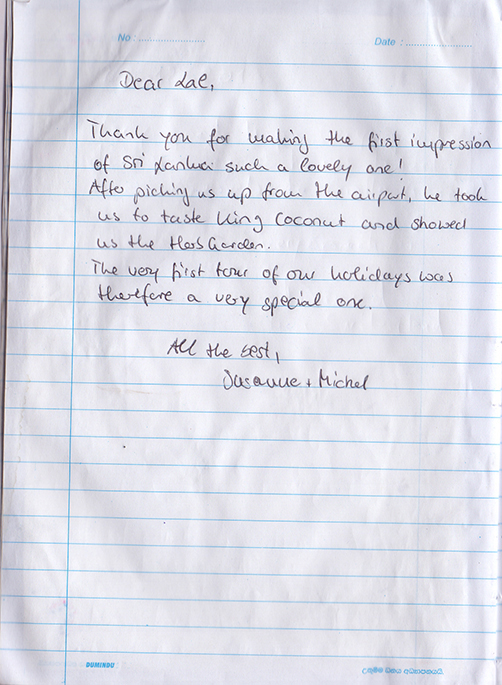 No : ........................
Date : ........................
Dear Lal,
Thank you for making the first impression
of Sri Lanka such a lovely one!
After picking us up from the airport, he took
us to taste King Coconut and showed
us the Herb Garden.
The very first tour of our holidays was
therefore a very special one.
All the best,
Susanne + Michel
DUMINDU